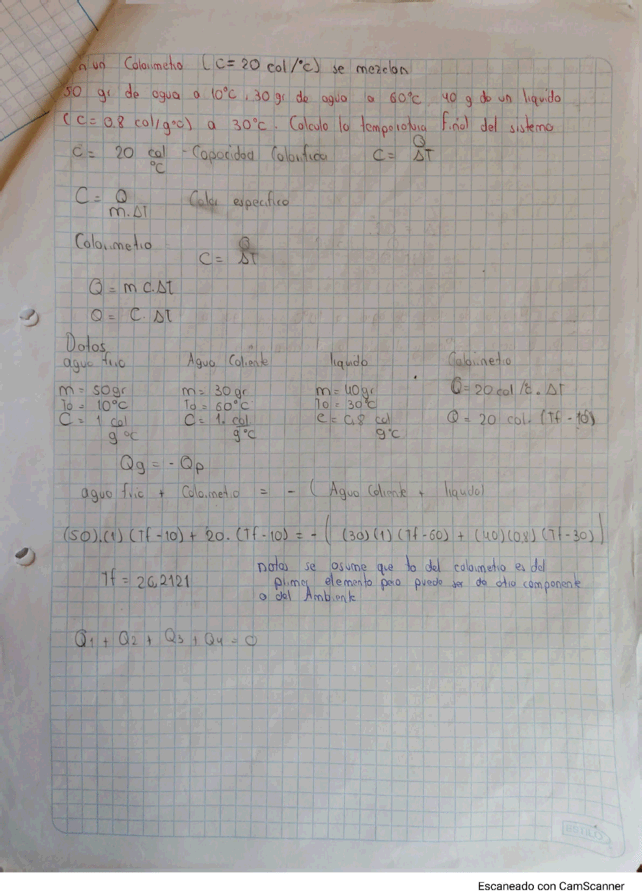 n un Calorimetro (C= 20 cal/°C) se mezclan
50 gr de agua a 10°C, 30 gr de agua a 60°C 40 g de un liquido
(C= 0.8 cal/g°C) a 30°C. Calcula la temperatura final del sistema
C= 20 cal/°C - Capacidad Calorifica C= Q/ΔT
C= Q/m.ΔT Calor especifico
Calorimetro C= Q/ΔT
Q= m C.ΔT
Q= C. ΔT
Datos
agua fria Agua Caliente liquido Calorimetro
m= 50gr m= 30gr m= 40gr Q= 20cal/°C. ΔT
To= 10°C To= 60°C To= 30°C
C= 1 cal/g°C C= 1. cal/g°C c= 0,8 cal/g°C Q= 20 cal. (Tf - 10)
Qg = - Qp
agua fria + Calorimetro = - ( Agua Caliente + liquido)
(50).(1) (Tf-10) + 20. (Tf-10) = - [ (30)(1)(Tf-60) + (40)(0.8)(Tf-30) ]
Tf = 26,2121
Notas se asume que To del calorimetro es del
primer elemento pero puede ser de otro componente
o del Ambiente
Q1 + Q2 + Q3 + Q4 = 0
Escaneado con CamScanner